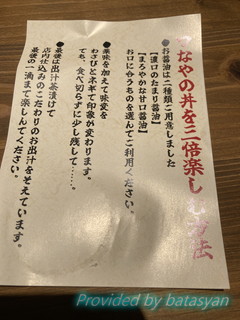 なやの丼を三倍楽しむ方法
●お醤油は二種類ご用意しました
【濃口のたまり醤油】
【まろやかな甘口醤油】
お口に合うものを選んでご利用ください。
●薬味を加えて味変を
わさびとネギで印象が変わります。
でも、食べ切らずに少し残して……。
●最後は出汁茶漬けで
店内仕込みのこだわりのお出汁をそえています。
最後の一滴まで楽しんでください。
Provided by batasyan